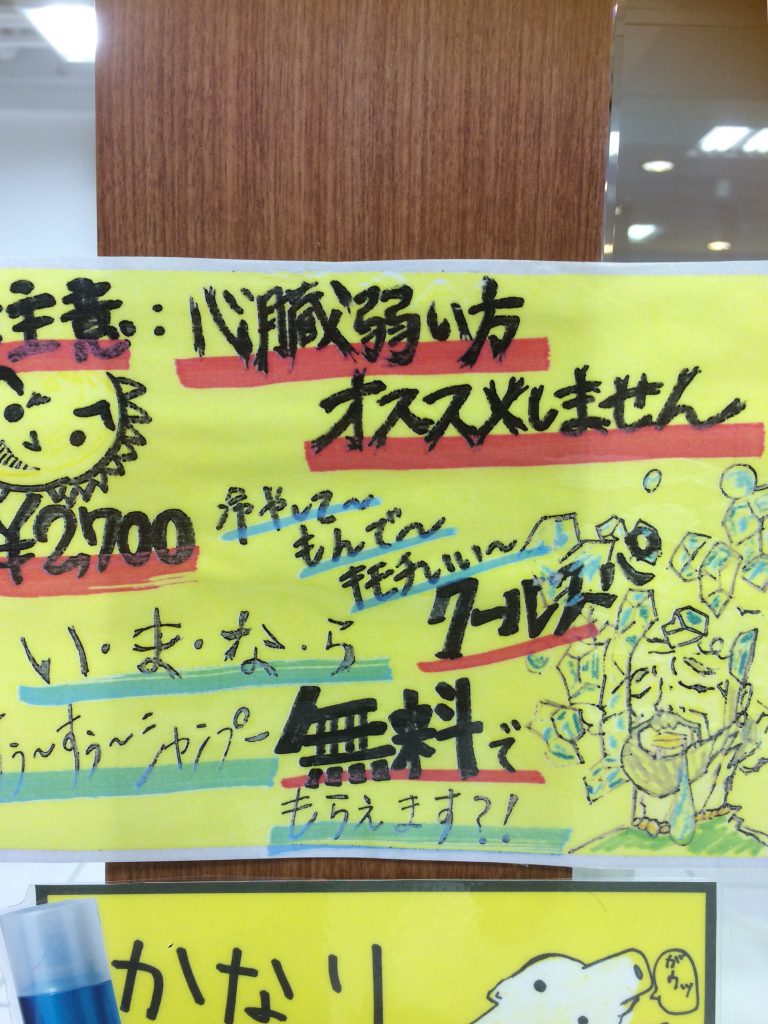 注意：心臓弱い方
オススメしません
¥2,700
冷やして〜
もんで〜
キモチいい〜
クールスパ
い・ま・な・ら
すぅ〜すぅ〜シャンプー
無料で
もらえます?!
かなり
がウッ